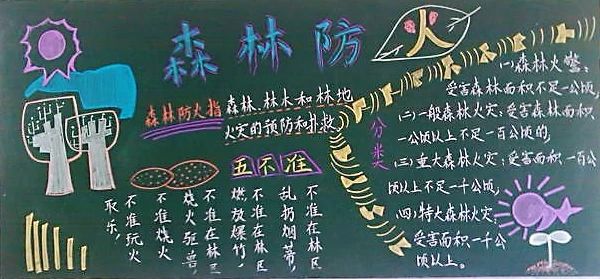 森林防火
森林防火指
森林、林木和林地
火灾的预防和扑救
五不准
不准在林区
乱扔烟蒂,
不准在林区
燃放爆竹,
不准在林区
烧火驱兽,
不准烧火
不准玩火
取乐,
分类
(一)森林火警:
受害森林面积不足一公顷,
(二)一般森林火灾:受害森林面积
一公顷以上不足一百公顷的,
(三)重大森林火灾:受害面积一百公
顷以上不足一千公顷,
(四)特大森林火灾:
受害面积一千公
顷以上。